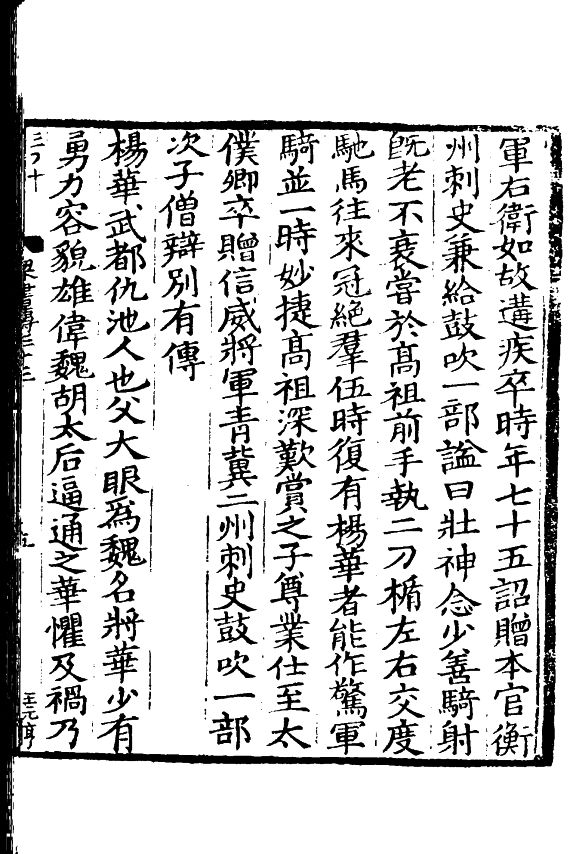 軍右衛如故遘疾卒時年七十五詔贈本官衡
州刺史兼給鼓吹一部謚曰壯神念少善騎射
旣老不衰嘗於髙祖前手執二刀楯左右交度
馳馬往來冠絶羣伍時復有楊華者能作驚軍
騎並一時妙捷髙祖深歎賞之子尊業仕至太
僕卿卒贈信威將軍青冀二州刺史鼓吹一部
次子僧辯别有傳
楊華武都仇池人也父大眼爲魏名將華少有
勇力容貌雄偉魏胡太后逼通之華懼及禍乃